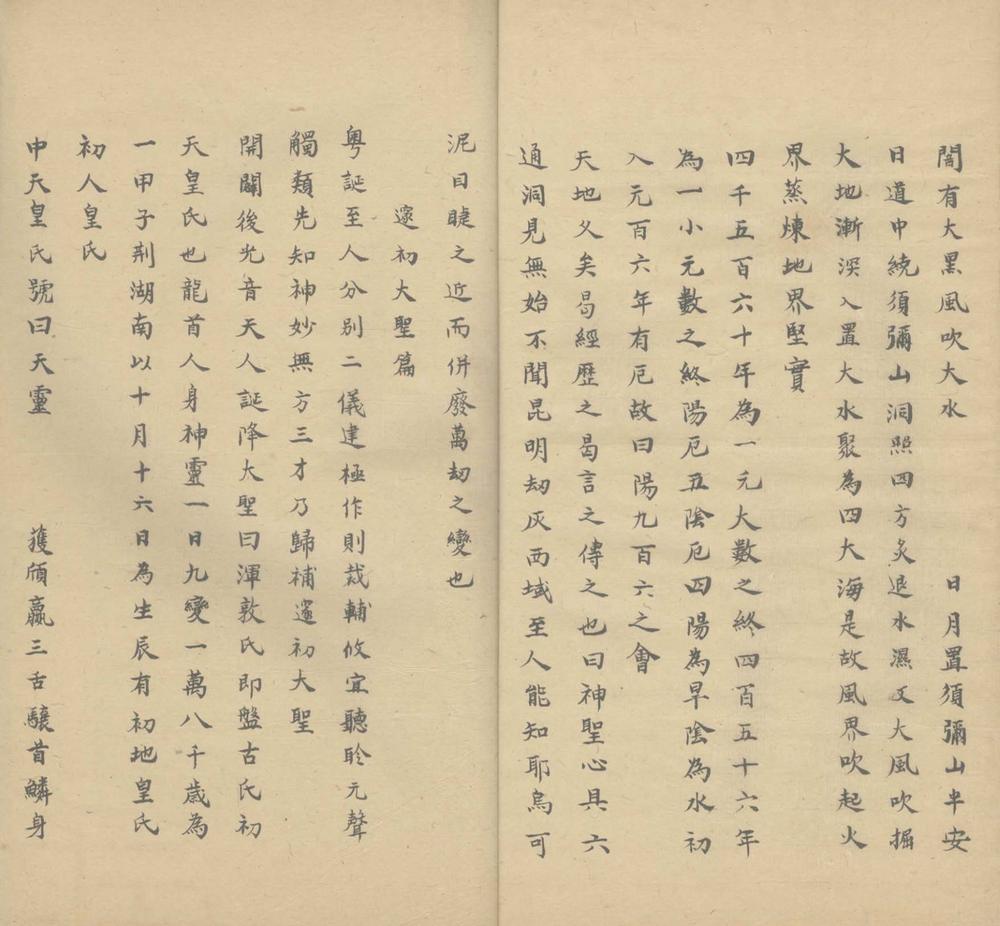 闇有大黑風吹大水　日月置須彌山半安
日道中繞須彌山洞照四方炙退水濕又大風吹掘
大地漸深入置大水聚為四大海是故風界吹起火
界蒸煉地界堅實
四千五百六十年為一元大數之終四百五十六年
為一小元數之終陽厄五陰厄四陽為旱陰為水初
入元百六年有厄故曰陽九百六之會
天地久矣曷經歷之曷言之傳之也曰神聖心具六
通洞見無始不聞昆明劫灰西域至人能知耶烏可
泥目睫之近而併廢萬劫之變也
邃初大聖篇
粵誕至人分別二儀建極作則裁輔攸宜聽聆元聲
觸類先知神妙無方三才乃歸補邃初大聖
開闢後光音天人誕降大聖曰渾敦氏即盤古氏初
天皇氏也龍首人身神靈一日九變一萬八千歲為
一甲子荊湖南以十月十六日為生辰有初地皇氏
初人皇氏
中天皇氏號曰天靈　頎羸三舌驤首鱗身